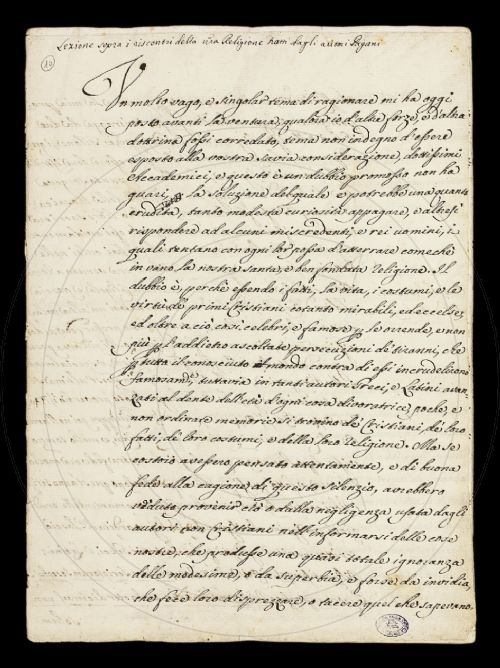 Lezione sopra i riscontri della vera Religione tratti dagli autori Pagani
Un molto vago, e singolar tema di ragionare mi ha oggi
posto avanti la ventura, qualora io d'alte forze, e d'alta
dottrina fossi corredato, tema non indegno d'essere
esposto alla vostra savia considerazione, dottissimi
Accademici, e questo è un dubbio promosso non ha
guari, la soluzione del quale e potrebbe una quanto
erudita, tanto modesta curiosità appagare, e altresì
rispondere ad alcuni miscredenti, e rei uomini, i
quali tentano con ogni lor possa d'atterrare comechè
in vano la nostra santa, e ben fondata religione. Il
dubbio è, perchè essendo i fatti, la vita, i costumi, e le
virtù de' primi Cristiani cotanto mirabili, ed eccelse,
ed oltre a ciò così celebri, e famose p se ovende, e non
più p l'addietro ascoltate persecuzioni di tiranni, che
p tutto il conosciuto mondo contra di essi incrudelirono
famosamte, tuttavia in tanti autori Greci, e Latini avan-
zati al dente dell'età d'ogni cosa divoratrice, poche, e
non ordinate memorie si trovino de' Cristiani, de' loro
fatti, de' loro costumi, e della loro religione. Ma se
costoro avessero pensato attentamente, e di buona
fede alla cagione di questo silenzio, avrebbero
veduto provenir ciò o dalla negligenza usata dagli
autori non Cristiani nell'informarsi delle cose
nostre, che produsse una quasi totale ignoranza
delle medesime, o da superbia, e forse da invidia,
che fece loro disprezzare, o tacere quel che sapevano.